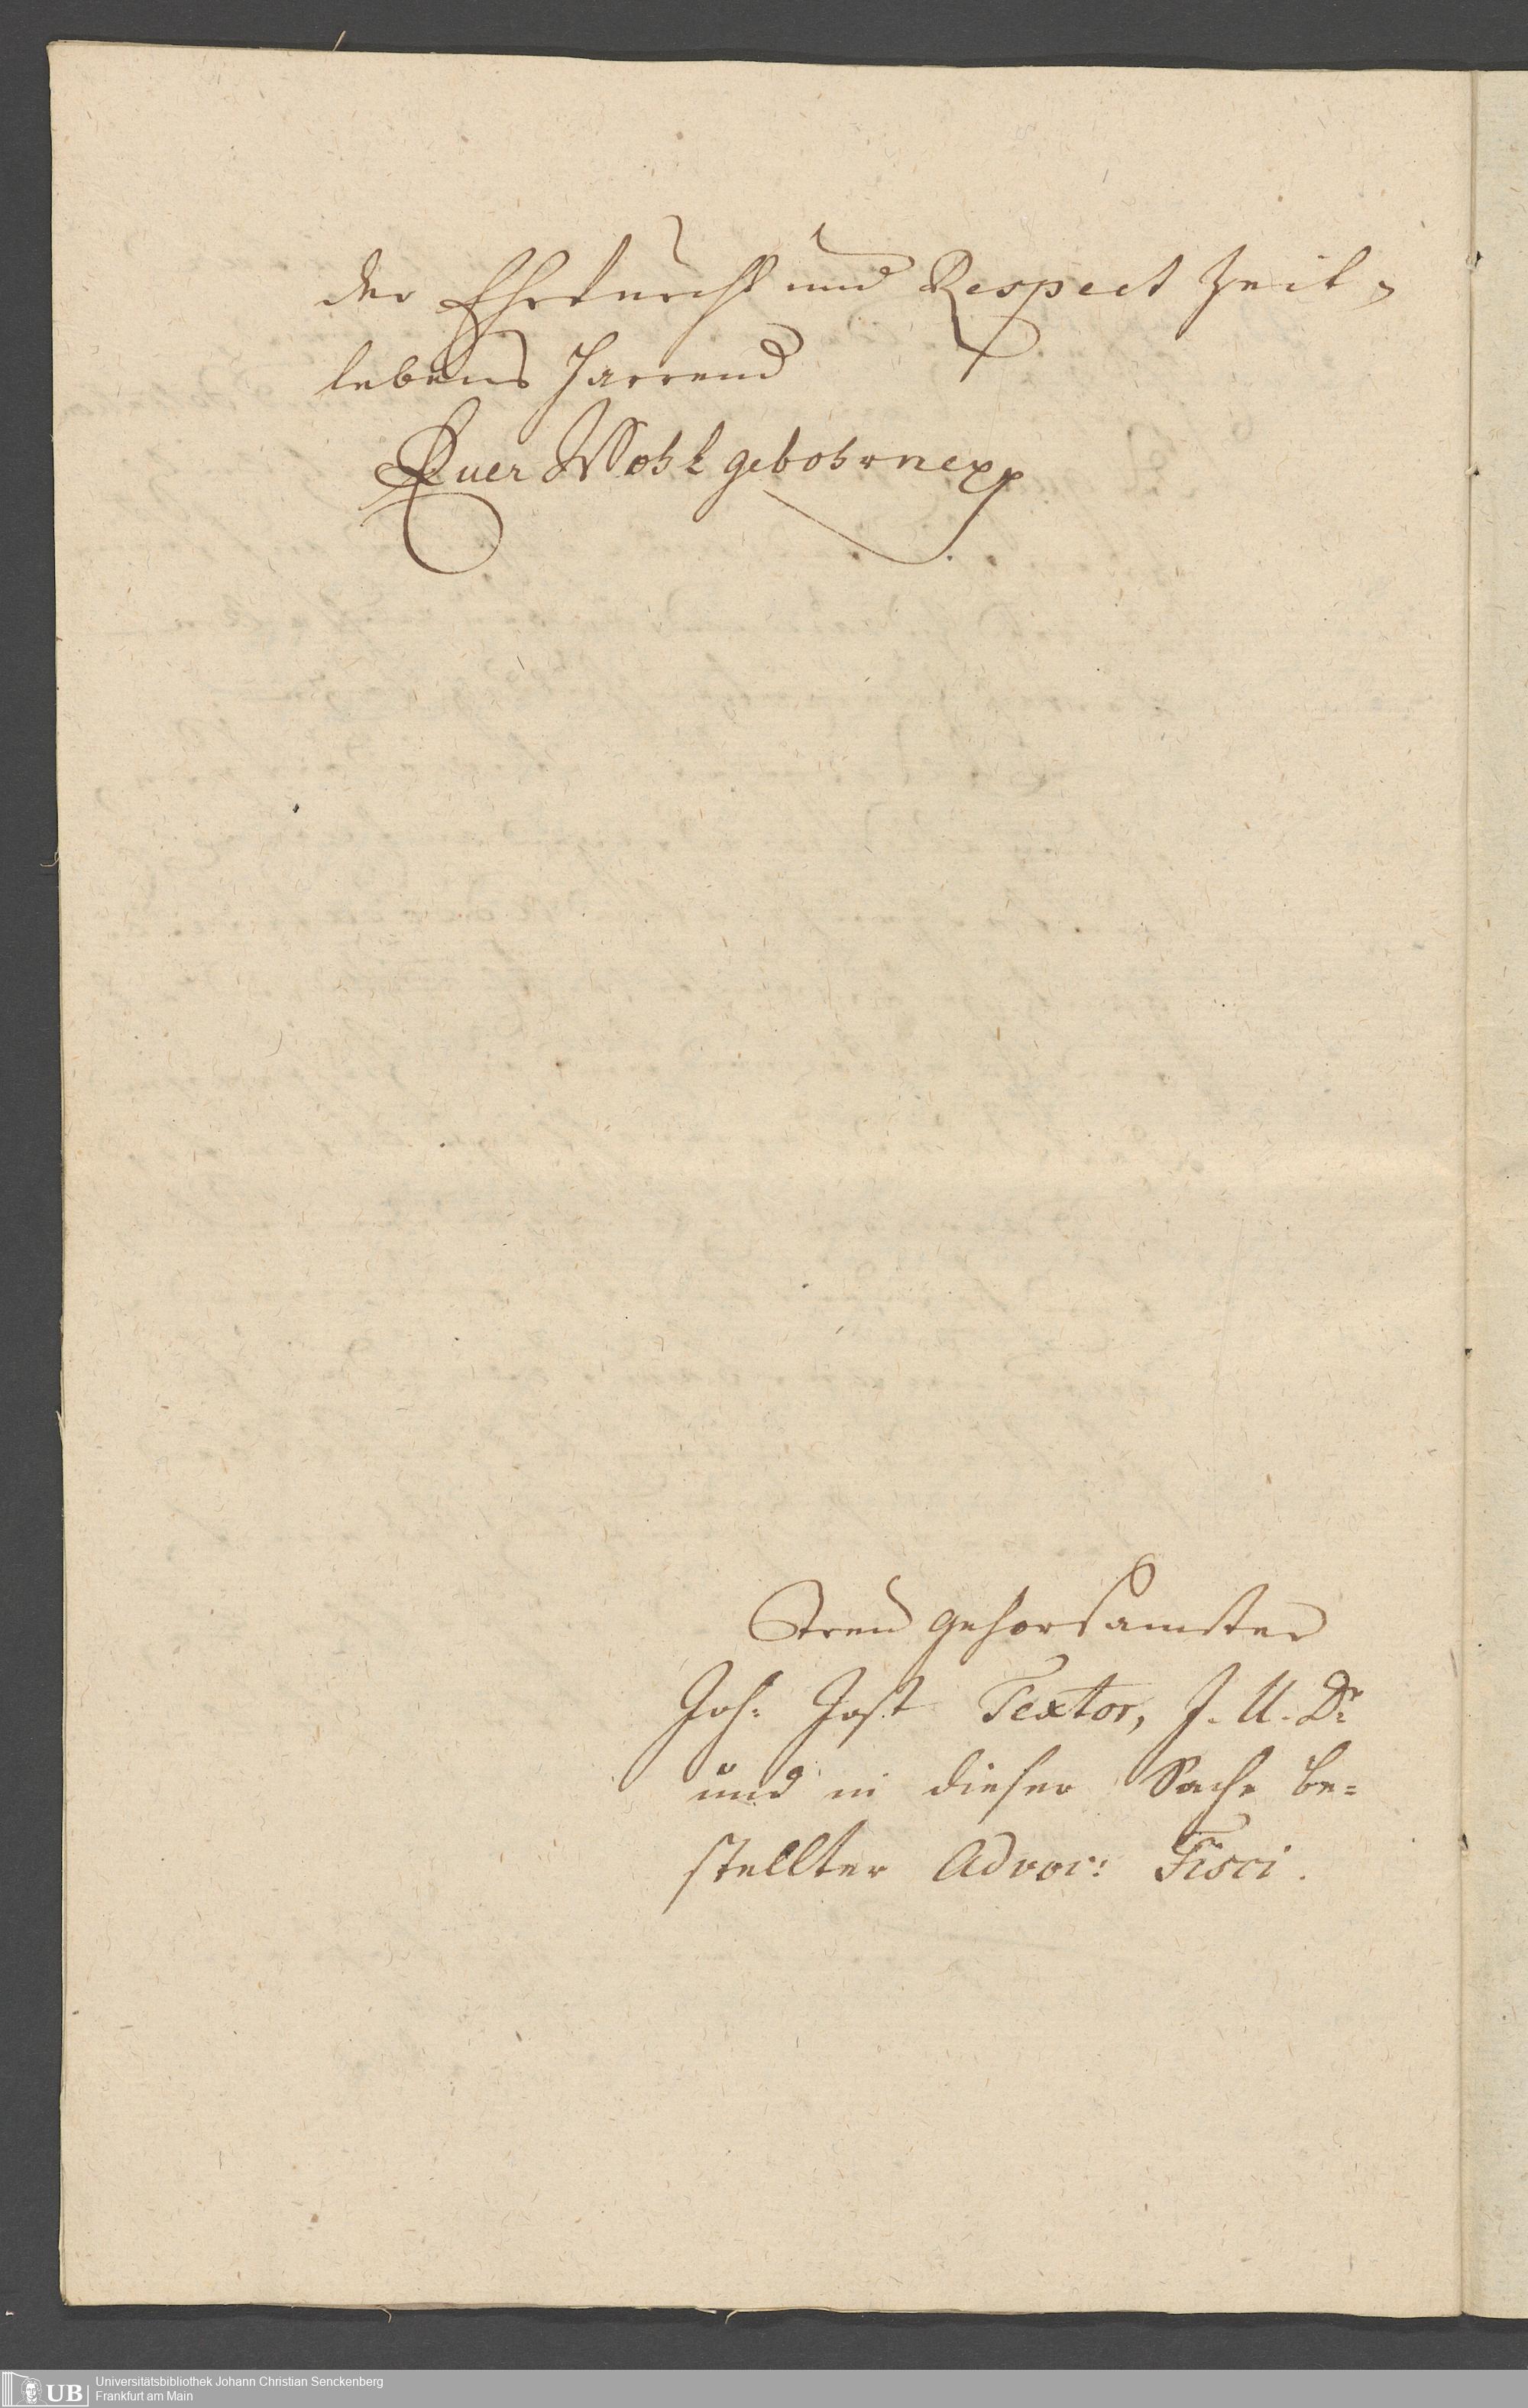 der Ehrfurcht und Respect Zeit-
lebens harrend
Euer Wohlgebohrne pp
Treu gehorsamster
Joh: Jost Textor, J. U. Dr
und in dieser Sache be=
stellter Advoc: Fisci.
UB
Universitätsbibliothek Johann Christian Senckenberg
Frankfurt am Main